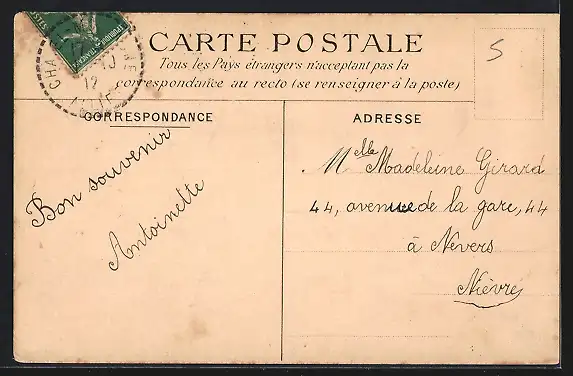 CARTE POSTALE
Tous les Pays étrangers n'acceptant pas la
correspondance au recto (se renseigner à la poste)
5
CORRESPONDANCE
Bon souvenir
Antoinette
ADRESSE
Melle Madeleine Girard
44, avenue de la gare, 44
à Nevers
Nièvre
12